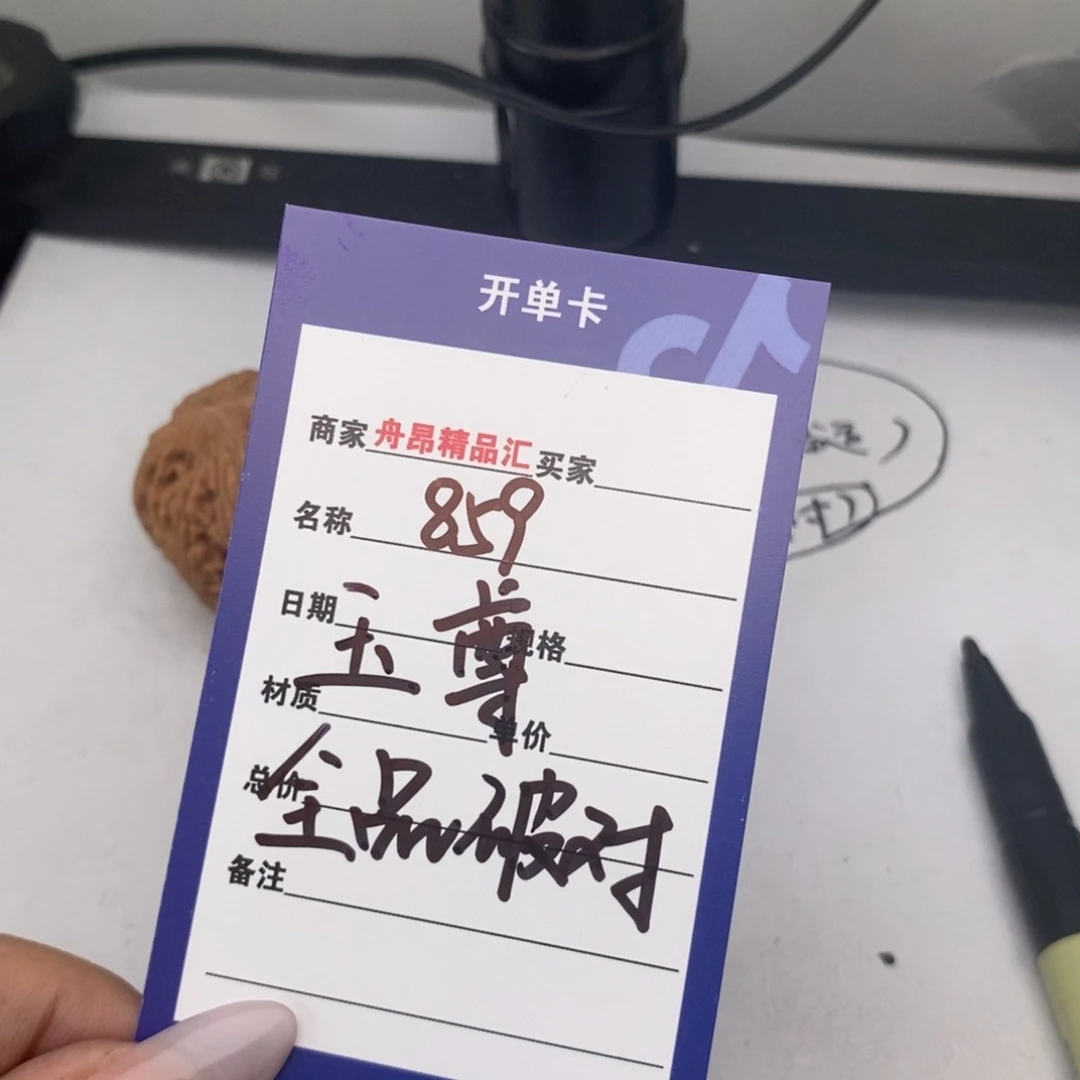 开单卡
商家 舟昂精品汇 买家
名称 859
日期 规格
玉尊
材质 单价
总价
全品被对
备注